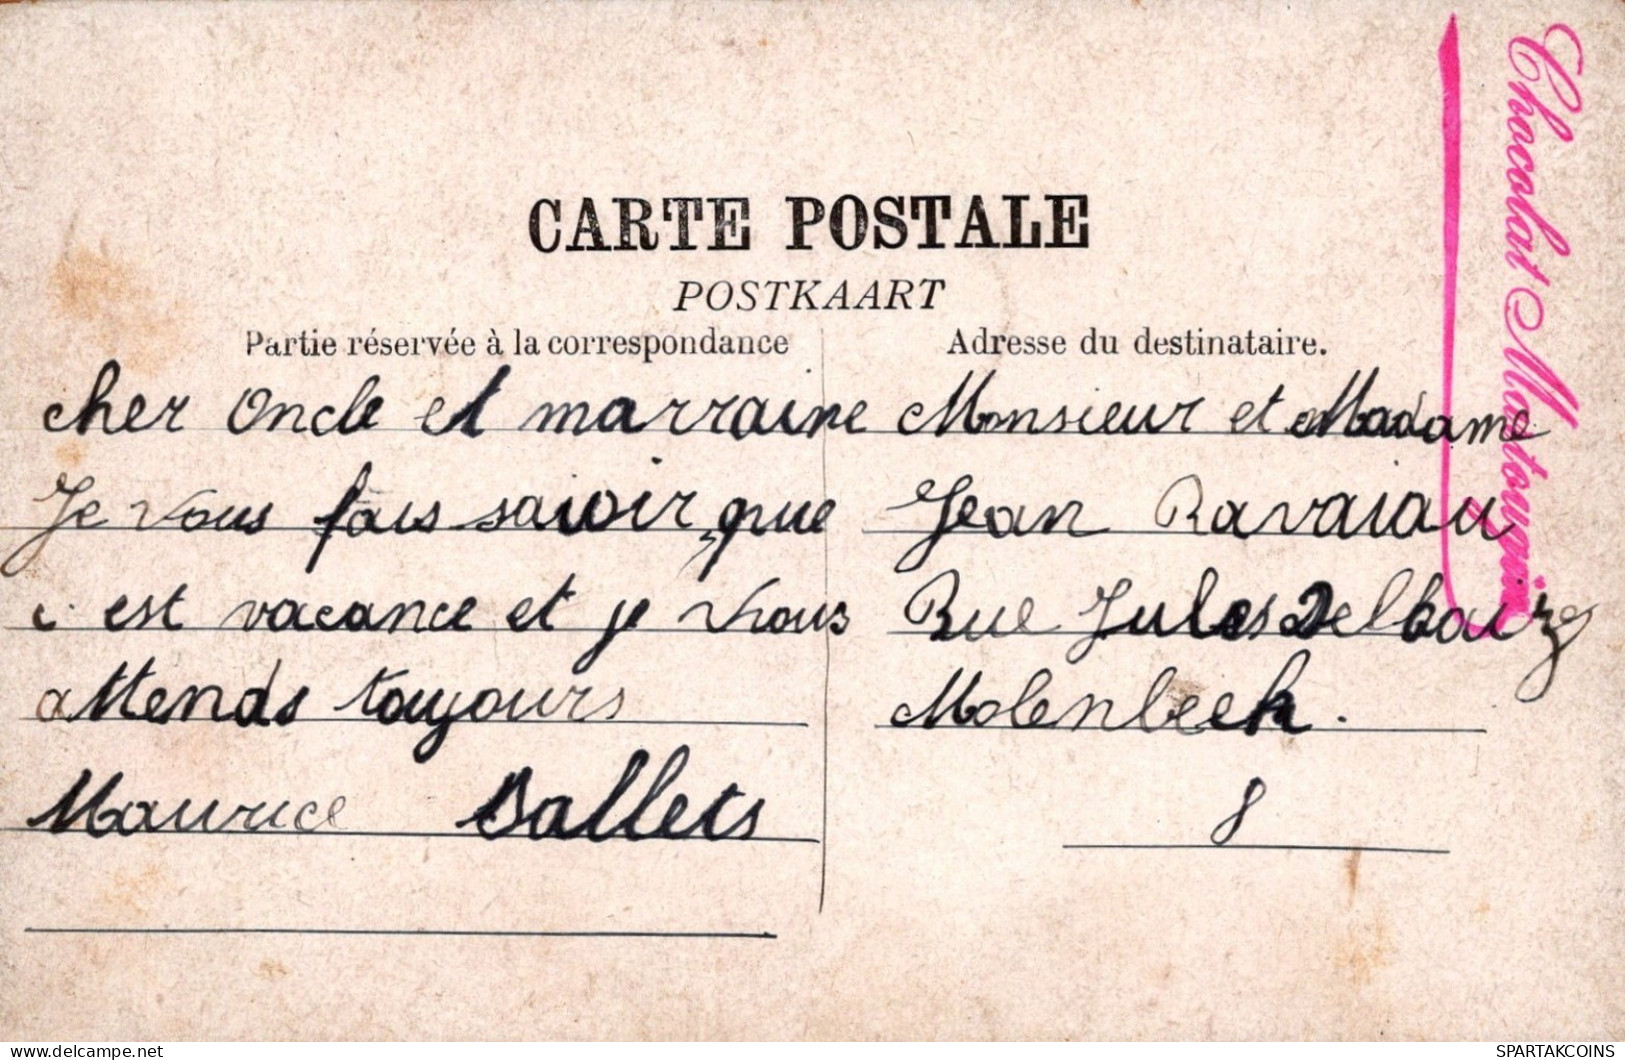 CARTE POSTALE
POSTKAART
Partie réservée à la correspondance
Adresse du destinataire.
cher Oncle et marraine
Je vous fais savoir que
c est vacance et je vous
attends toujours
Maurice Sallets
Monsieur et Madame
Jean Ravaiau
Rue Jules Delbaize
Molenbeek.
8
Chocolat Montougin
SPARTAKCOINS